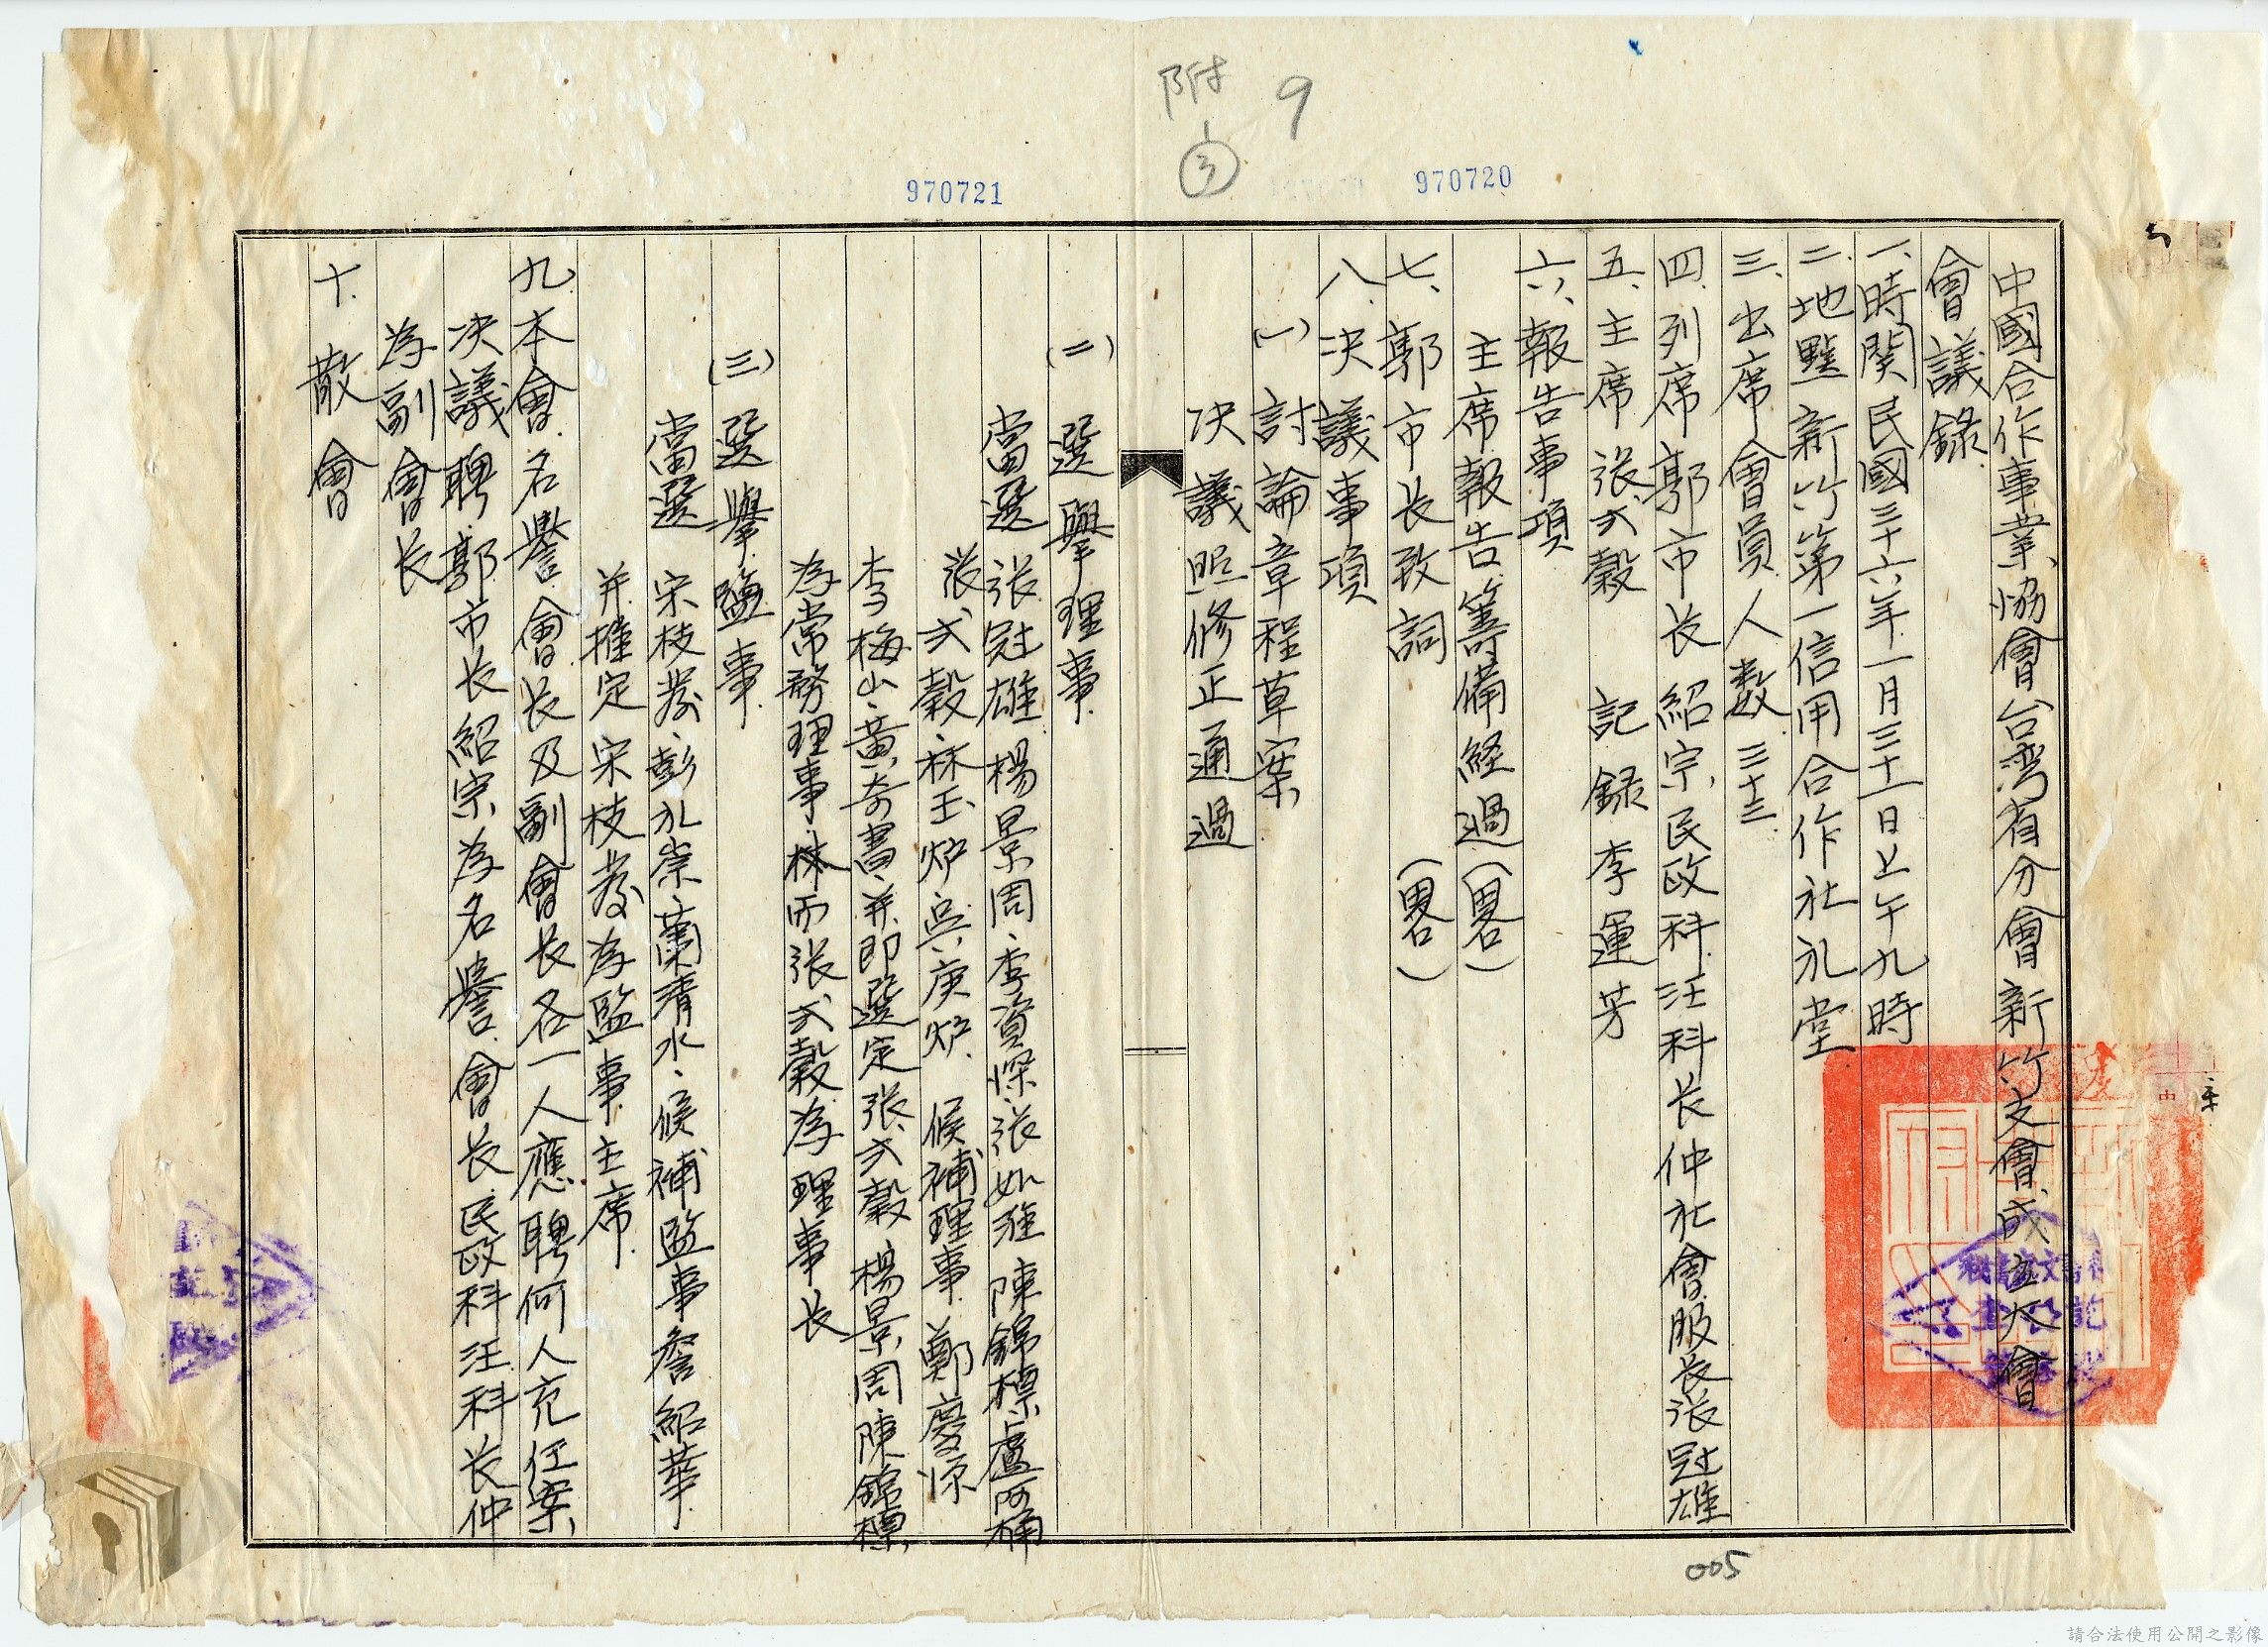 附
1
③
9
970720
970721
中國合作事業協會台湾省分會新竹支會成立大會
會議錄
一、時間民國三十六年一月三十一日上午九時
二、地點新竹第一信用合作社礼堂
三、出席會員人数三十三
四、列席郭市长紹宗、民政科汪科长仲社會服长張冠雄
五、主席張式穀　記錄李運芳
六、報告事項
主席報告籌備経過(畧)
七、郭市长致詞(畧)
八、決議事項
(一)討論章程草案
決議照修正通過
(二)選擧理事
當選張冠雄、楊景周、李資深、張如淮、陳錦標、盧阿桶
張式穀、林玉炉、吳庚炉、候補理事鄭慶源
李梅山、黃奇書、并即選定張式穀、楊景周、陳錦標
為常務理事、林而張式穀為理事长
(三)選擧監事
當選宋枝發、彭礼崇、蕭清水、候補監事詹紹華
并推定宋枝發為監事主席
九、本會名譽會长及副會长各一人應聘何人充任案
決議聘郭市长紹宗為名譽會长民政科汪科长仲
為副會长
十、散會
005
請合法使用公開之影像